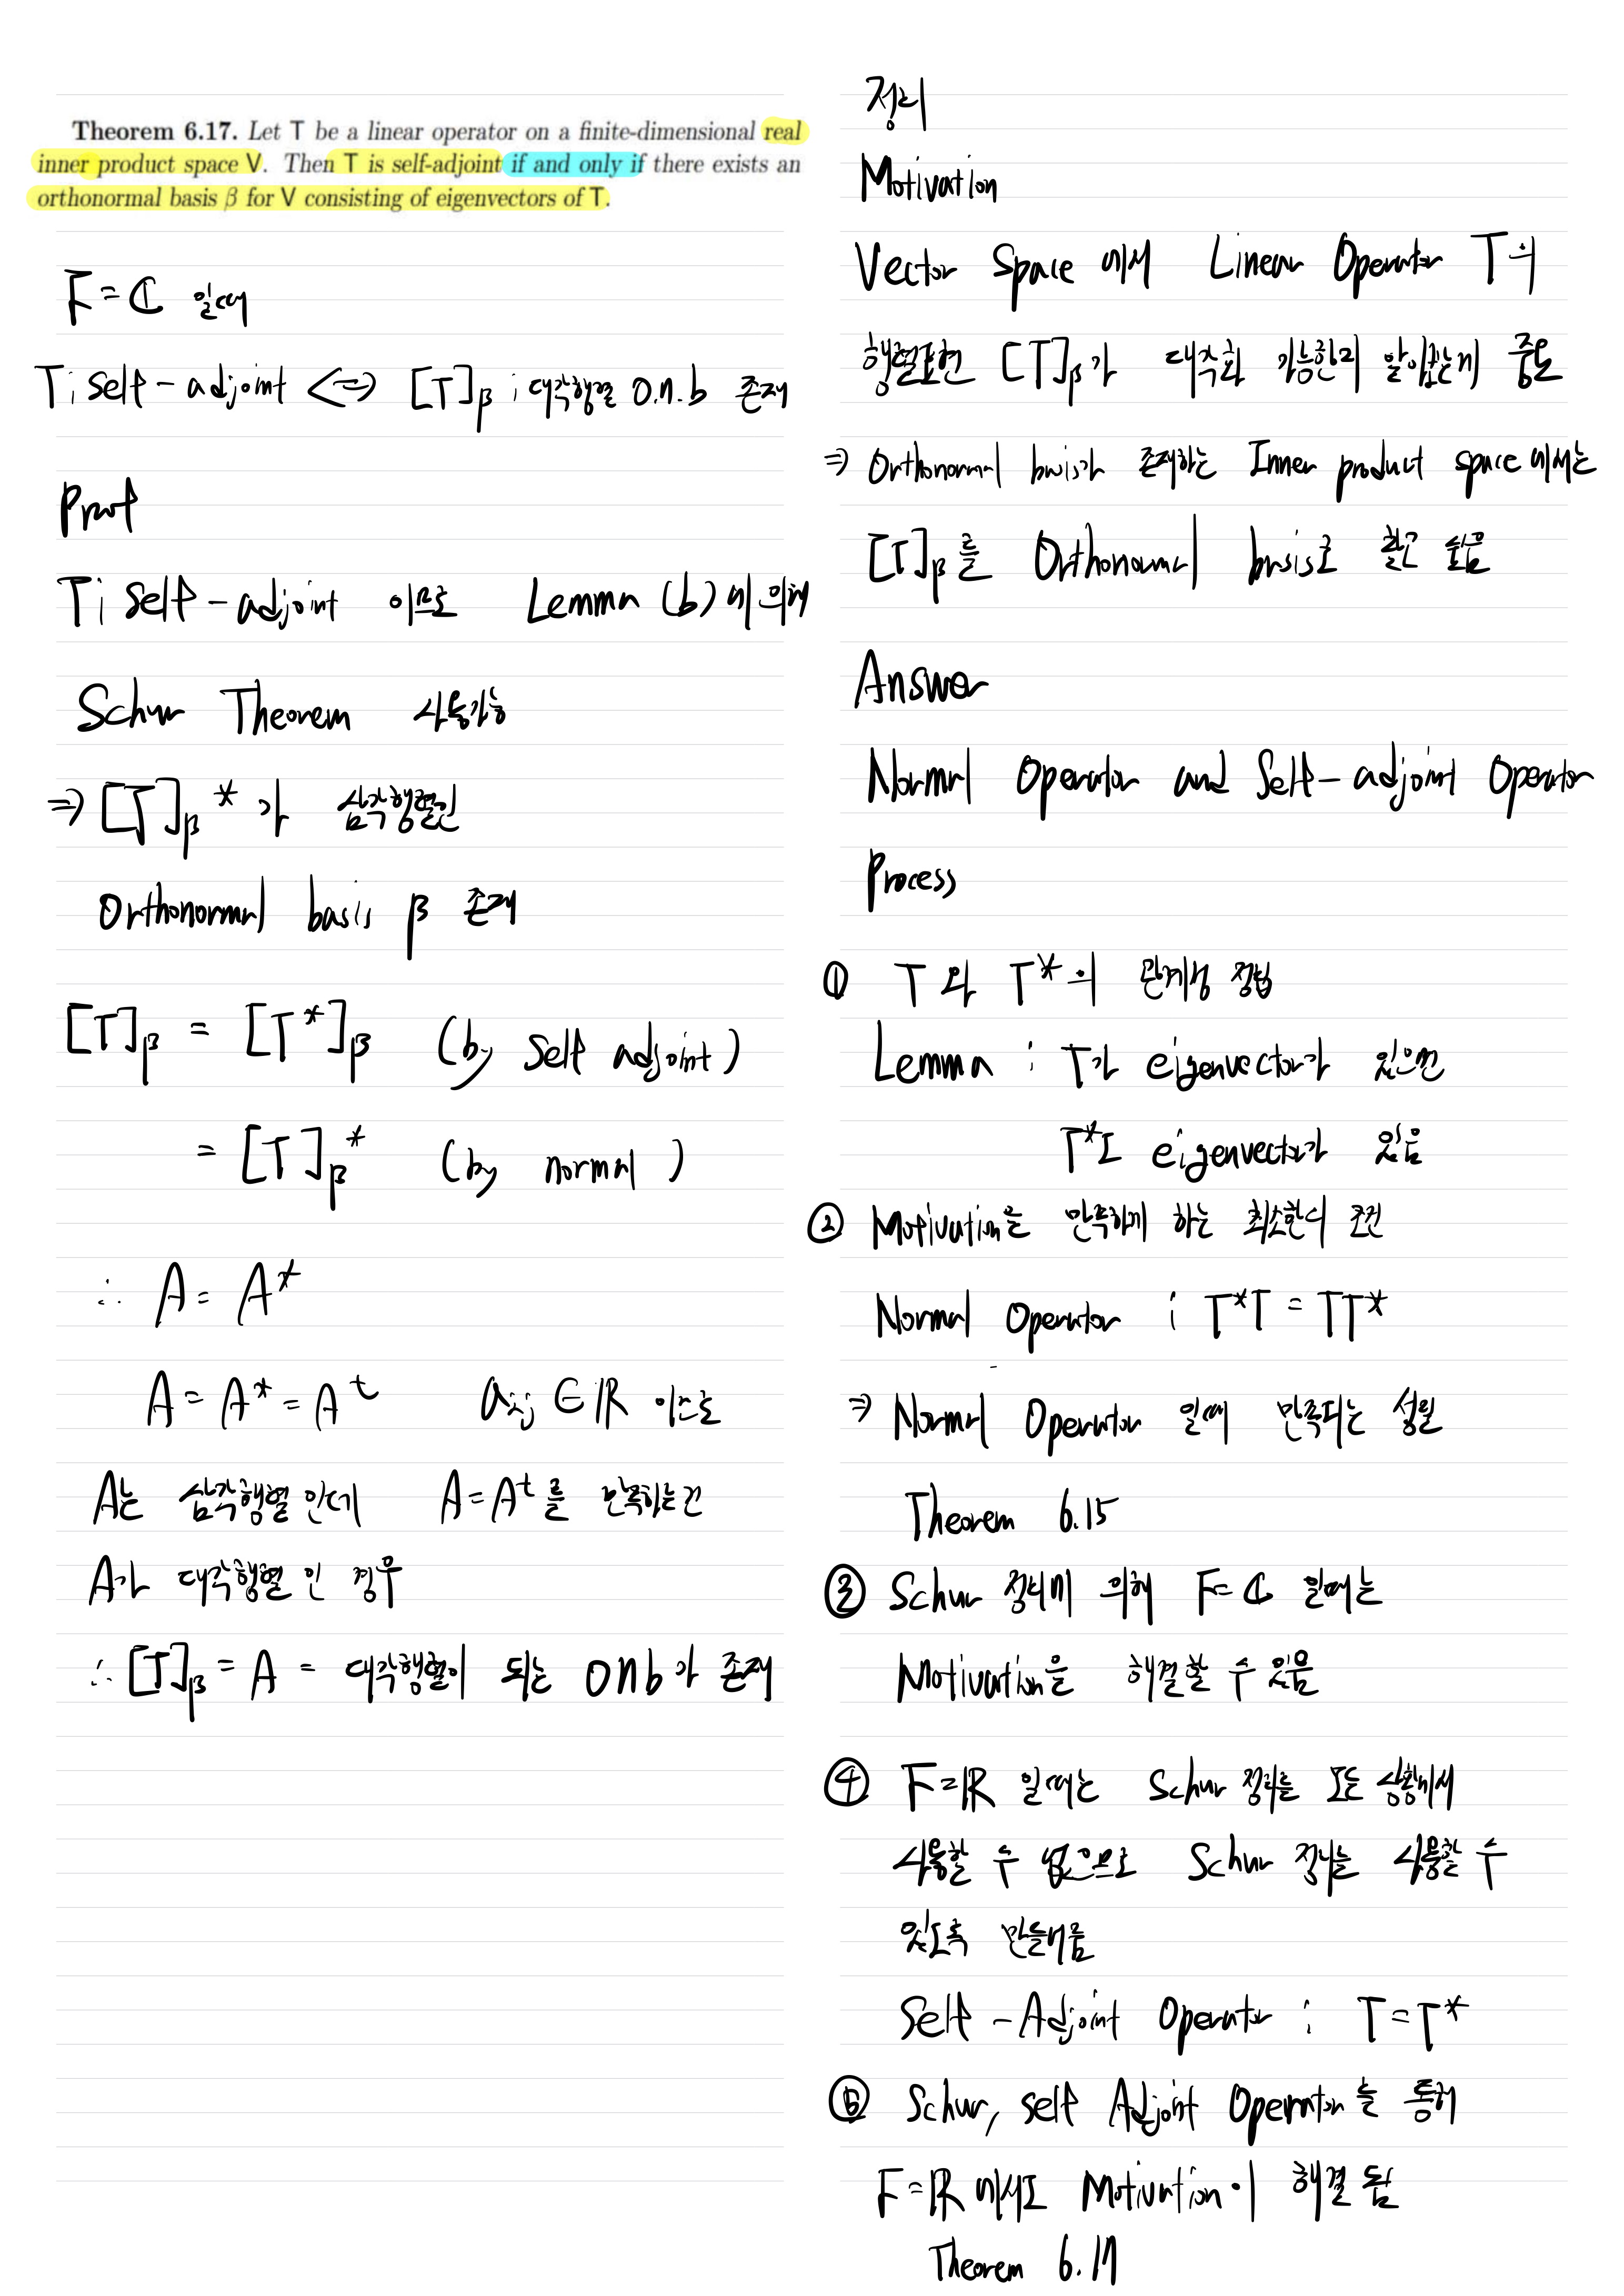 Theorem 6.17. Let T be a linear operator on a finite-dimensional real
inner product space V. Then T is self-adjoint if and only if there exists an
orthonormal basis β for V consisting of eigenvectors of T.
F = ℂ 일때
T ; self-adjoint <=> [T]β ; 대각행렬 o.n.b 존재
Proof
T ; self-adjoint 이므로 Lemma (b)에 의해
Schur Theorem 사용가능
⇒ [T]β* 가 삼각행렬인
Orthonormal basis β 존재
[T]β = [T*]β (by self adjoint)
= [T]β* (by normal)
∴ A = A*
A = A* = Aᵗ aᵢⱼ ∈ ℝ 이므로
A는 삼각행렬 인데 A = Aᵗ 를 만족하는건
A가 대각행렬 인 경우
∴ [T]β = A = 대각행렬이 되는 onb가 존재
정리
Motivation
Vector Space 에서 Linear Operator T의
행렬표현 [T]β가 대각화 가능한지 알아보는게 중요
⇒ Orthonormal basis가 존재하는 Inner product space 에서는
[T]β를 Orthonormal basis로 하고 싶음
Answer
Normal Operator and Self-adjoint Operator
Process
① T 와 T*의 관계성 정립
Lemma ; T가 eigenvector가 있으면
T*도 eigenvector가 있음
② Motivation을 만족하게 하는 최소한의 조건
Normal Operator ; T*T = TT*
⇒ Normal Operator 일때 만족되는 성질
Theorem 6.15
③ Schur 정리에 의해 F = ℂ 일때는
Motivation을 해결할 수 있음
④ F = ℝ 일때는 Schur 정리를 모든 상황에서
사용할 수 없으므로 Schur 정리를 사용할 수
있도록 만들어줌
Self-Adjoint Operator ; T = T*
⑤ Schur, self Adjoint Operator를 통해
F = ℝ 에서도 Motivation이 해결 됨
Theorem 6.17